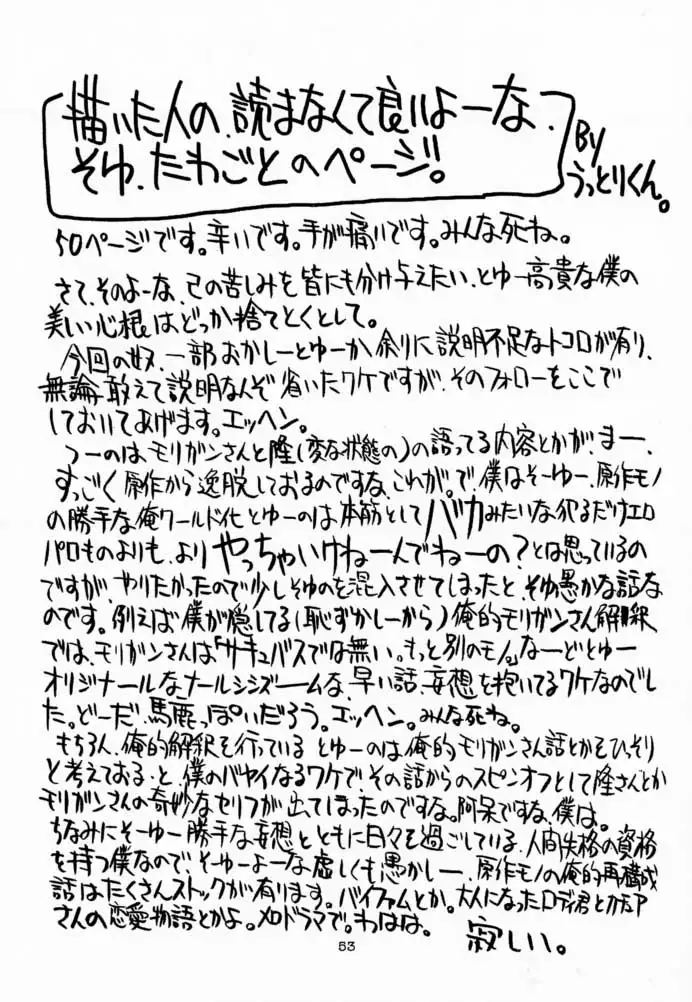 描いた人の、読まなくて良いよーな、
そゆ、たわごとのページ!。
By
うっとりくん。
50ページです。辛いです。手が痛いです。みんな死ね。
さて、そのよーな、己の苦しみを皆にも分け与えたい、とゆー高貴な僕の
美しい心根はどっか捨てとくとして。
今回の奴、一部おかしーとゆーか、余りに説明不足なトコロが有り、
無論、敢えて説明なんぞ省いたワケですが、そのフォローをここで
しておいてあげます。エッヘン。
つーのは、モリガンさんと隆(変な状態の)の語ってる内容とかが、まー、
すっごく原作から逸脱しておるのですな、これが。で、僕はそーゆー、原作モノ
の勝手な俺ワールド化とゆーのは本筋としてバカみたいな犯るだけエロ
パロものよりも、よりやっちゃいけねーんでねーの?とは思っているの
ですが、やりたかったので少しそゆのを混入させてしまったと、そゆ愚かな話な
のです。例えば僕が隠してる(恥ずかしーから)俺的モリガンさん解釈
では、モリガンさんは「サキュバスでは無い。もっと別のモノ」なーどとゆー
オリジナールなナールシシズームな、早い話、妄想を抱いてるワケなのでし
た。どーだ、馬鹿っぽいだろう。エッヘン。みんな死ね。
もちろん、俺的解釈を行っているとゆーのは俺的モリガンさん話とかをひっそり
と考えておる、と、僕のバヤイなるワケで、その話からのスピンオフとして隆さんとか
モリガンさんの奇妙なセリフが出てしまったのですな。阿呆ですな、僕は。
ちなみにそーゆー勝手な妄想とともに日々を過ごしている、人間失格の資格
を持つ僕なので、そーゆーよーな虚しくも愚かしー、原作モノの俺的再構成
話はたくさんストックが有ります。バイファムとか。大人になったロディ君とカチュア
さんの恋愛物語とかよ。メロドラマで。わはは。
寂しい。
53